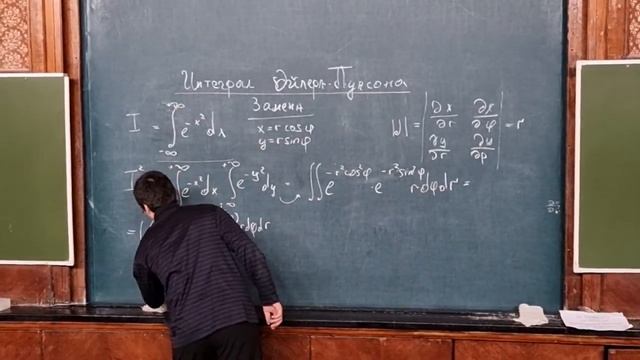 Интеграл Эйлера-Пуассона
I = ∫_{-∞}^{+∞} e^{-x²}dx
Замена
x = r cosφ
y = r sinφ
|J| = | ∂x/∂r ∂x/∂φ ; ∂y/∂r ∂y/∂φ | = r
I² = ∫_{-∞}^{+∞} e^{-x²}dx ∫_{-∞}^{+∞} e^{-y²}dy = ∬ e^{-r²cos²φ} · e^{-r²sin²φ} r dφdr =
= rdφdr